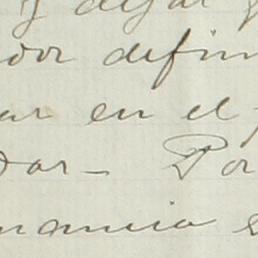 y dejar
dor defin
ar en el
dar - Por
nancia